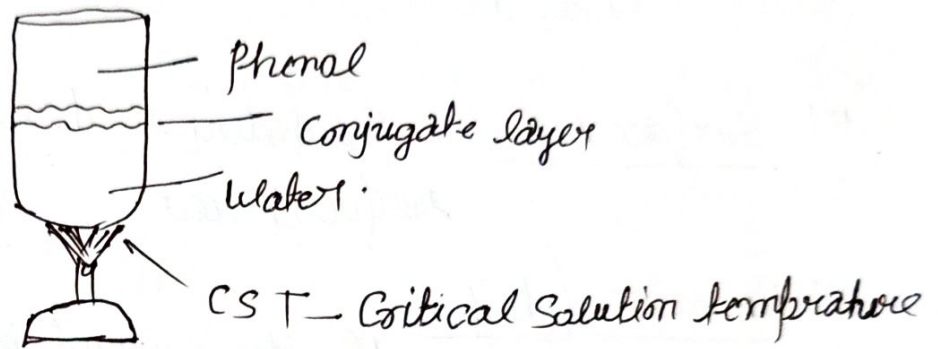 Phenol
Conjugate layer
Water.
CST - Critical Solution temprature